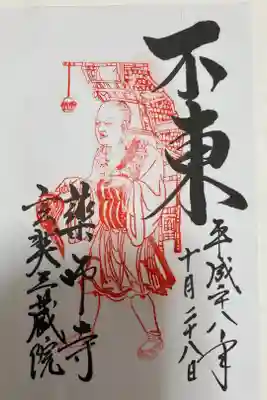 不東
平成廿八年
十月二十八日
薬师寺
玄奘三蔵院